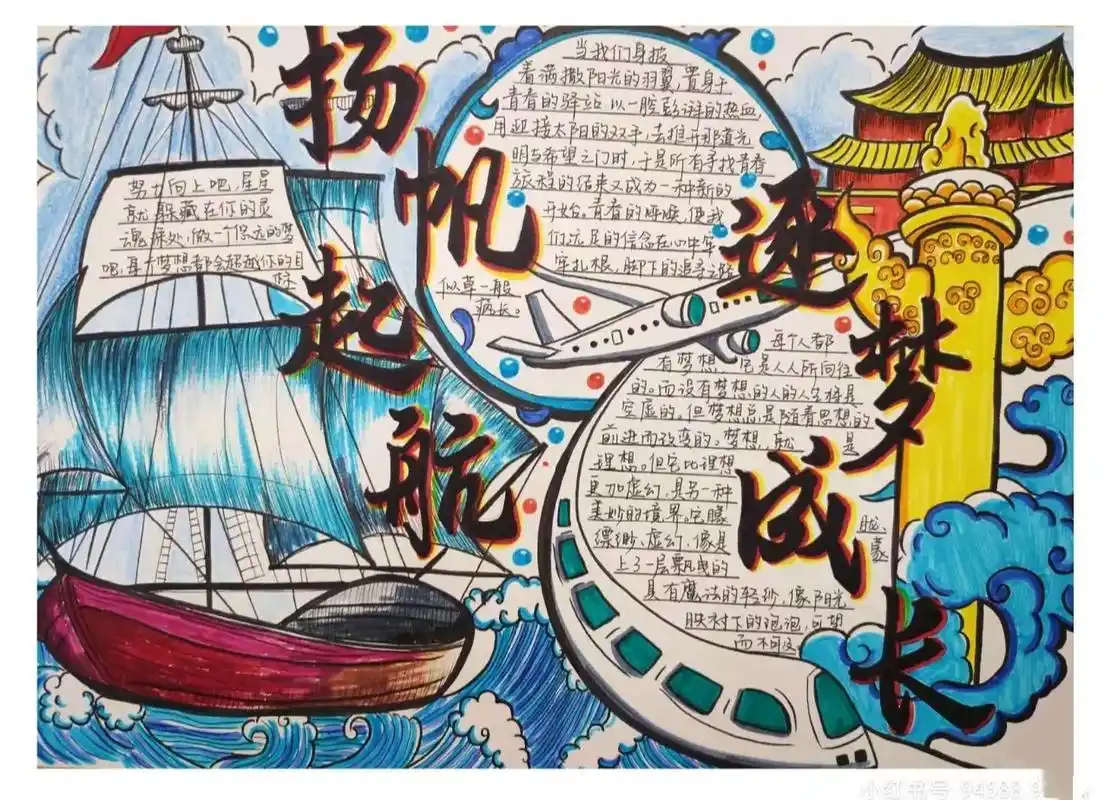 扬帆起航
逐梦成长
努力向上吧,星星
就躲藏在你的灵
魂深处,做一个悠远的梦
吧,每个梦想都会超越你的目
标
当我们身披
着满撒阳光的羽翼,置身于
青春的驿站,以一腔彭湃的热血
用迎接太阳的双手,去推开那道光
明与希望之门时,于是所有寻找青春
旅程的结束又成为一种新的
开始。青春的呼唤,使我
们沉足的信念在心中牢
牢扎根,脚下的追寻之路
似草一般
疯长。
每个人都
有梦想,它是人人所向往
的。而没有梦想的人的人生将是
空虚的,但梦想总是随着思想的
前进而改变的。梦想,就 是
理想。但它比理想
更加虚幻,是另一种
美妙的境界。它朦
胧、
缥缈、虚幻,像是
蒙
上了一层飘曳的
具有魔法的轻纱,像阳光
映衬下的泡泡,可望
而不可及
小红书号 94588